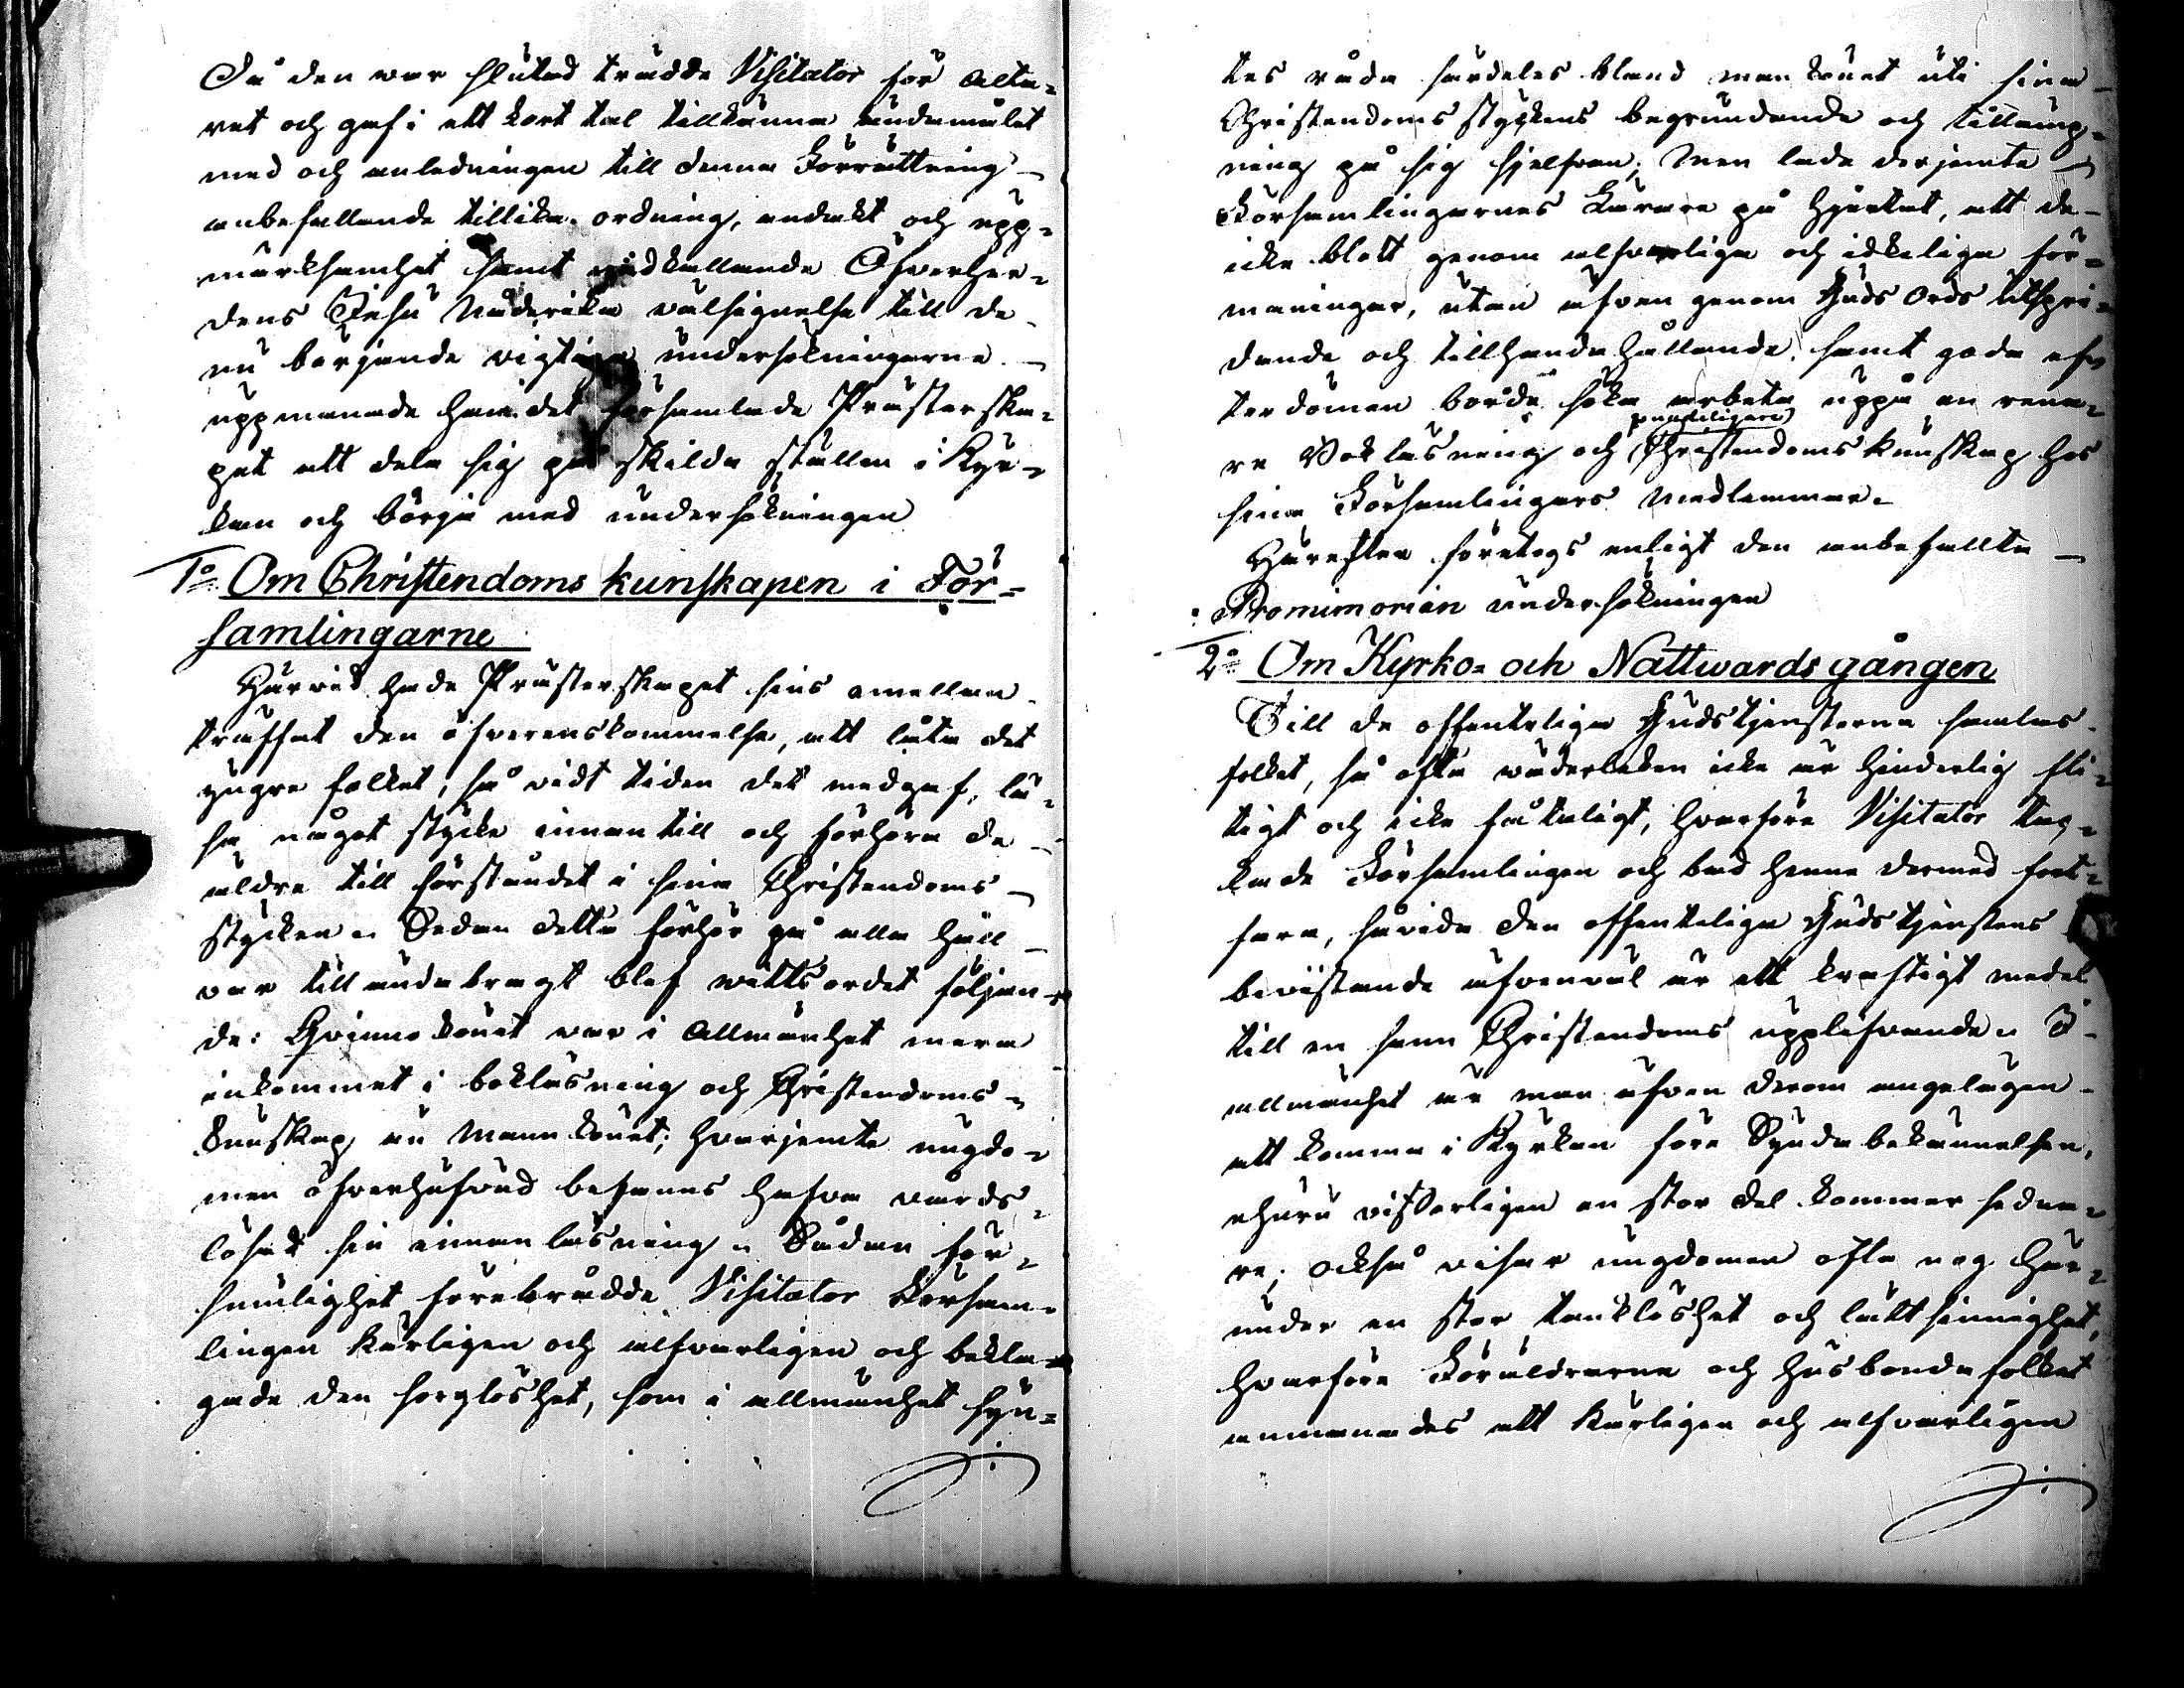 Då den war slutad trädde Visitator för Alta-
ret och gaf i ett kort tal tillkänna ändamålet
med och anledningen till denna Förrättning
anbefallande tillika ordning, andakt och upp-
märksamhet samt nedkallande Öfverher-
dens Jesu Nåderika välsignelse till de
nu börjande vigtiga undersökningarne.
uppmanade han det församlade Prästerska-
pet att dela sig på skilda ställen i Kyr-
kan och börja med undersökningen
1o Om Christendoms kunskapen i För-
samlingarne
Härvid hade Prästerskapet sins emellan
träffat den öfverenskommelse, att låta det
yngre folket, så vidt tiden det medgaf, lä-
sa något stycke innantill och förhöra de
äldre till förståndet i sina Christendoms
stycken. Sedan detta förhör på alla håll
var till ända bragt blef wittsordet följan-
de: Qvinnokönet var i Allmänhet mera
inkommet i bokläsning och Christendoms-
kunskap än Mankönet; hvarjemte ungdo-
men öfverhufvud befanns hafva vårds-
lösat sin innanläsning. Sådan för-
sumlighet förebrådde Visitator Försam-
lingen kärligen och alfvarligen och bekla-
gade den sorglöshet, som i allmänhet syn-
tes råda särdeles bland mankönet uti sina
Christendomsstyckens begrundande och tillämp-
ning på sig sjelfvan; Men lade derjemte
Församlingarnes Lärare på hjertat, att de
icke blott genom alfvarliga och idkeliga för-
maningar, utan äfven genom Guds Ords utspri-
dande och tillhandahållande, samt goda ef-
terdömen borde söka arbeta uppå en rena-
grundeligare
re Bokläsning och Christendoms kunskap hos
sina Församlingars Medlemmar.
Härefter företogs enligt den anbefallta
Promimorian undersökningen
2o Om Kyrko- och Nattwards gången
Till de offentliga Gudstjensterna samlas
folket, så ofta väderleken icke är hinderlig fli-
tigt och icke fåtaligt, hvarföre Visitator tac-
kade Församlingen och bad henne dermed fort-
fara, såvida den offentliga Gudstjenstens
bevistande äfvenväl är ett kraftigt medel
till en sann Christendoms upplifvande. I
allmänhet är man äfven derom angelägen
att komma i Kyrkan före Syndabekännelsen,
ehuru visserligen en stor del kommer sedna-
re; också visar ungdomen ofta nog här-
under en stor tanklöshet och lättsinnighet,
hvarföre Föräldrarna och husbondefolket
anmanades att kärligen och alfvarligen